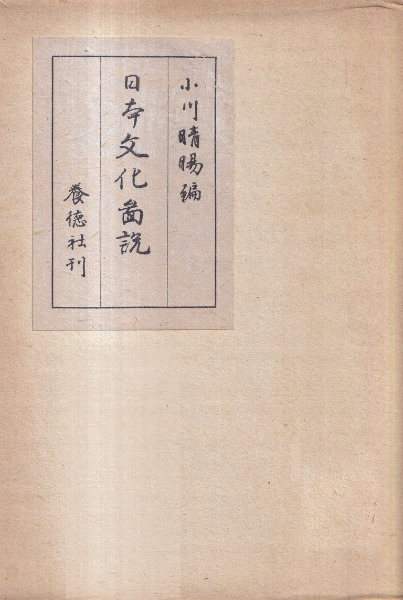 小川晴暘編
日本文化啚説
養徳社刊